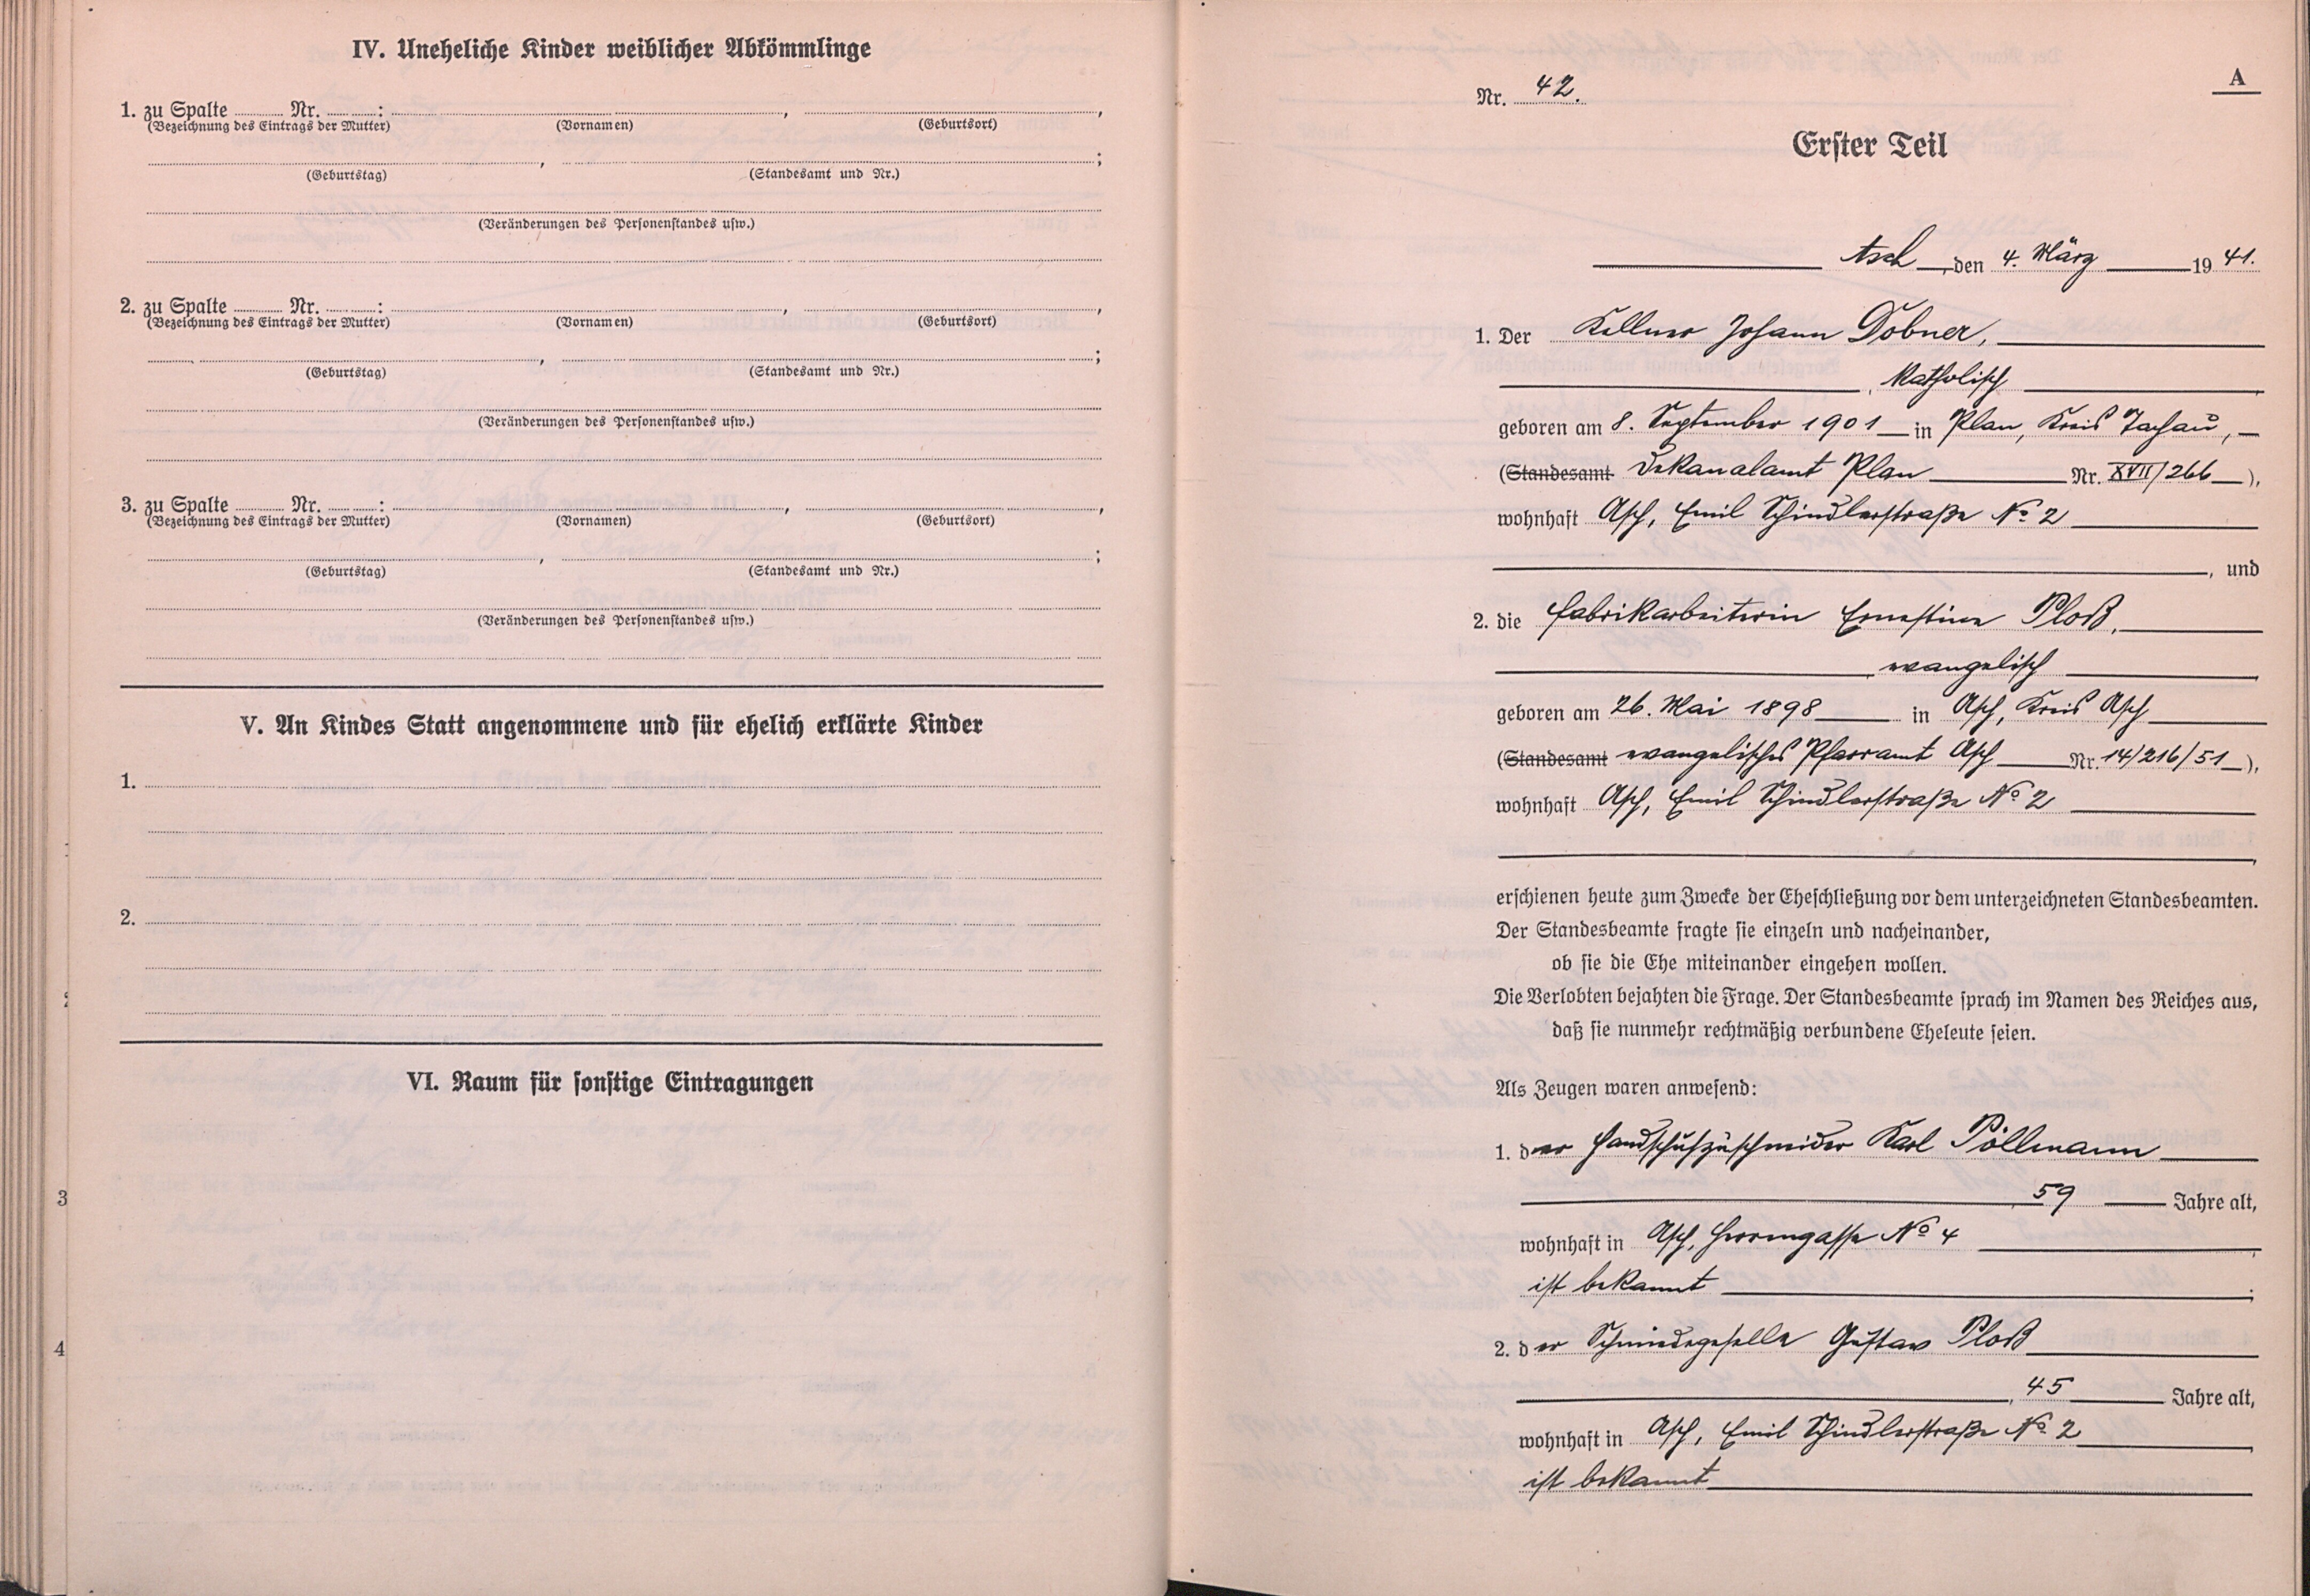 IV. Uneheliche Kinder weiblicher Abkömmlinge
1. zu Spalte ........ Nr. ........: ........, ........,
(Bezeichnung des Eintrags der Mutter) (Vornamen) (Geburtsort)
........, ........;
(Geburtstag) (Standesamt und Nr.)
(Veränderungen des Personenstandes usw.)
2. zu Spalte ........ Nr. ........: ........, ........,
(Bezeichnung des Eintrags der Mutter) (Vornamen) (Geburtsort)
........, ........;
(Geburtstag) (Standesamt und Nr.)
(Veränderungen des Personenstandes usw.)
3. zu Spalte ........ Nr. ........: ........, ........,
(Bezeichnung des Eintrags der Mutter) (Vornamen) (Geburtsort)
........, ........;
(Geburtstag) (Standesamt und Nr.)
(Veränderungen des Personenstandes usw.)
V. An Kindes Statt angenommene und für ehelich erklärte Kinder
1.
2.
VI. Raum für sonstige Eintragungen
3
4
A
Nr. 42.
Erster Teil
Asch, den 4. März 1941.
1. Der Kellner Johann Dobner,
, katholisch,
geboren am 8. September 1901 in Plan, Kreis Tachau,
(Standesamt Dekanalamt Plan Nr. XVII/266),
wohnhaft Asch, Emil Schindlerstraße No 2
, und
2. die Fabrikarbeiterin Ernestine Ploß,
, evangelisch,
geboren am 26. Mai 1898 in Asch, Kreis Asch
(Standesamt evangelisches Pfarramt Asch Nr. 14/216/51),
wohnhaft Asch, Emil Schindlerstraße No 2
,
erschienen heute zum Zwecke der Eheschließung vor dem unterzeichneten Standesbeamten.
Der Standesbeamte fragte sie einzeln und nacheinander,
ob sie die Ehe miteinander eingehen wollen.
Die Verlobten bejahten die Frage. Der Standesbeamte sprach im Namen des Reiches aus,
daß sie nunmehr rechtmäßig verbundene Eheleute seien.
Als Zeugen waren anwesend:
1. der Handschuhzuschneider Karl Pöllmann
, 59 Jahre alt,
wohnhaft in Asch, Herrengasse No 4,
ist bekannt;
2. der Schmiedegeselle Gustav Ploß
, 45 Jahre alt,
wohnhaft in Asch, Emil Schindlerstraße No 2,
ist bekannt